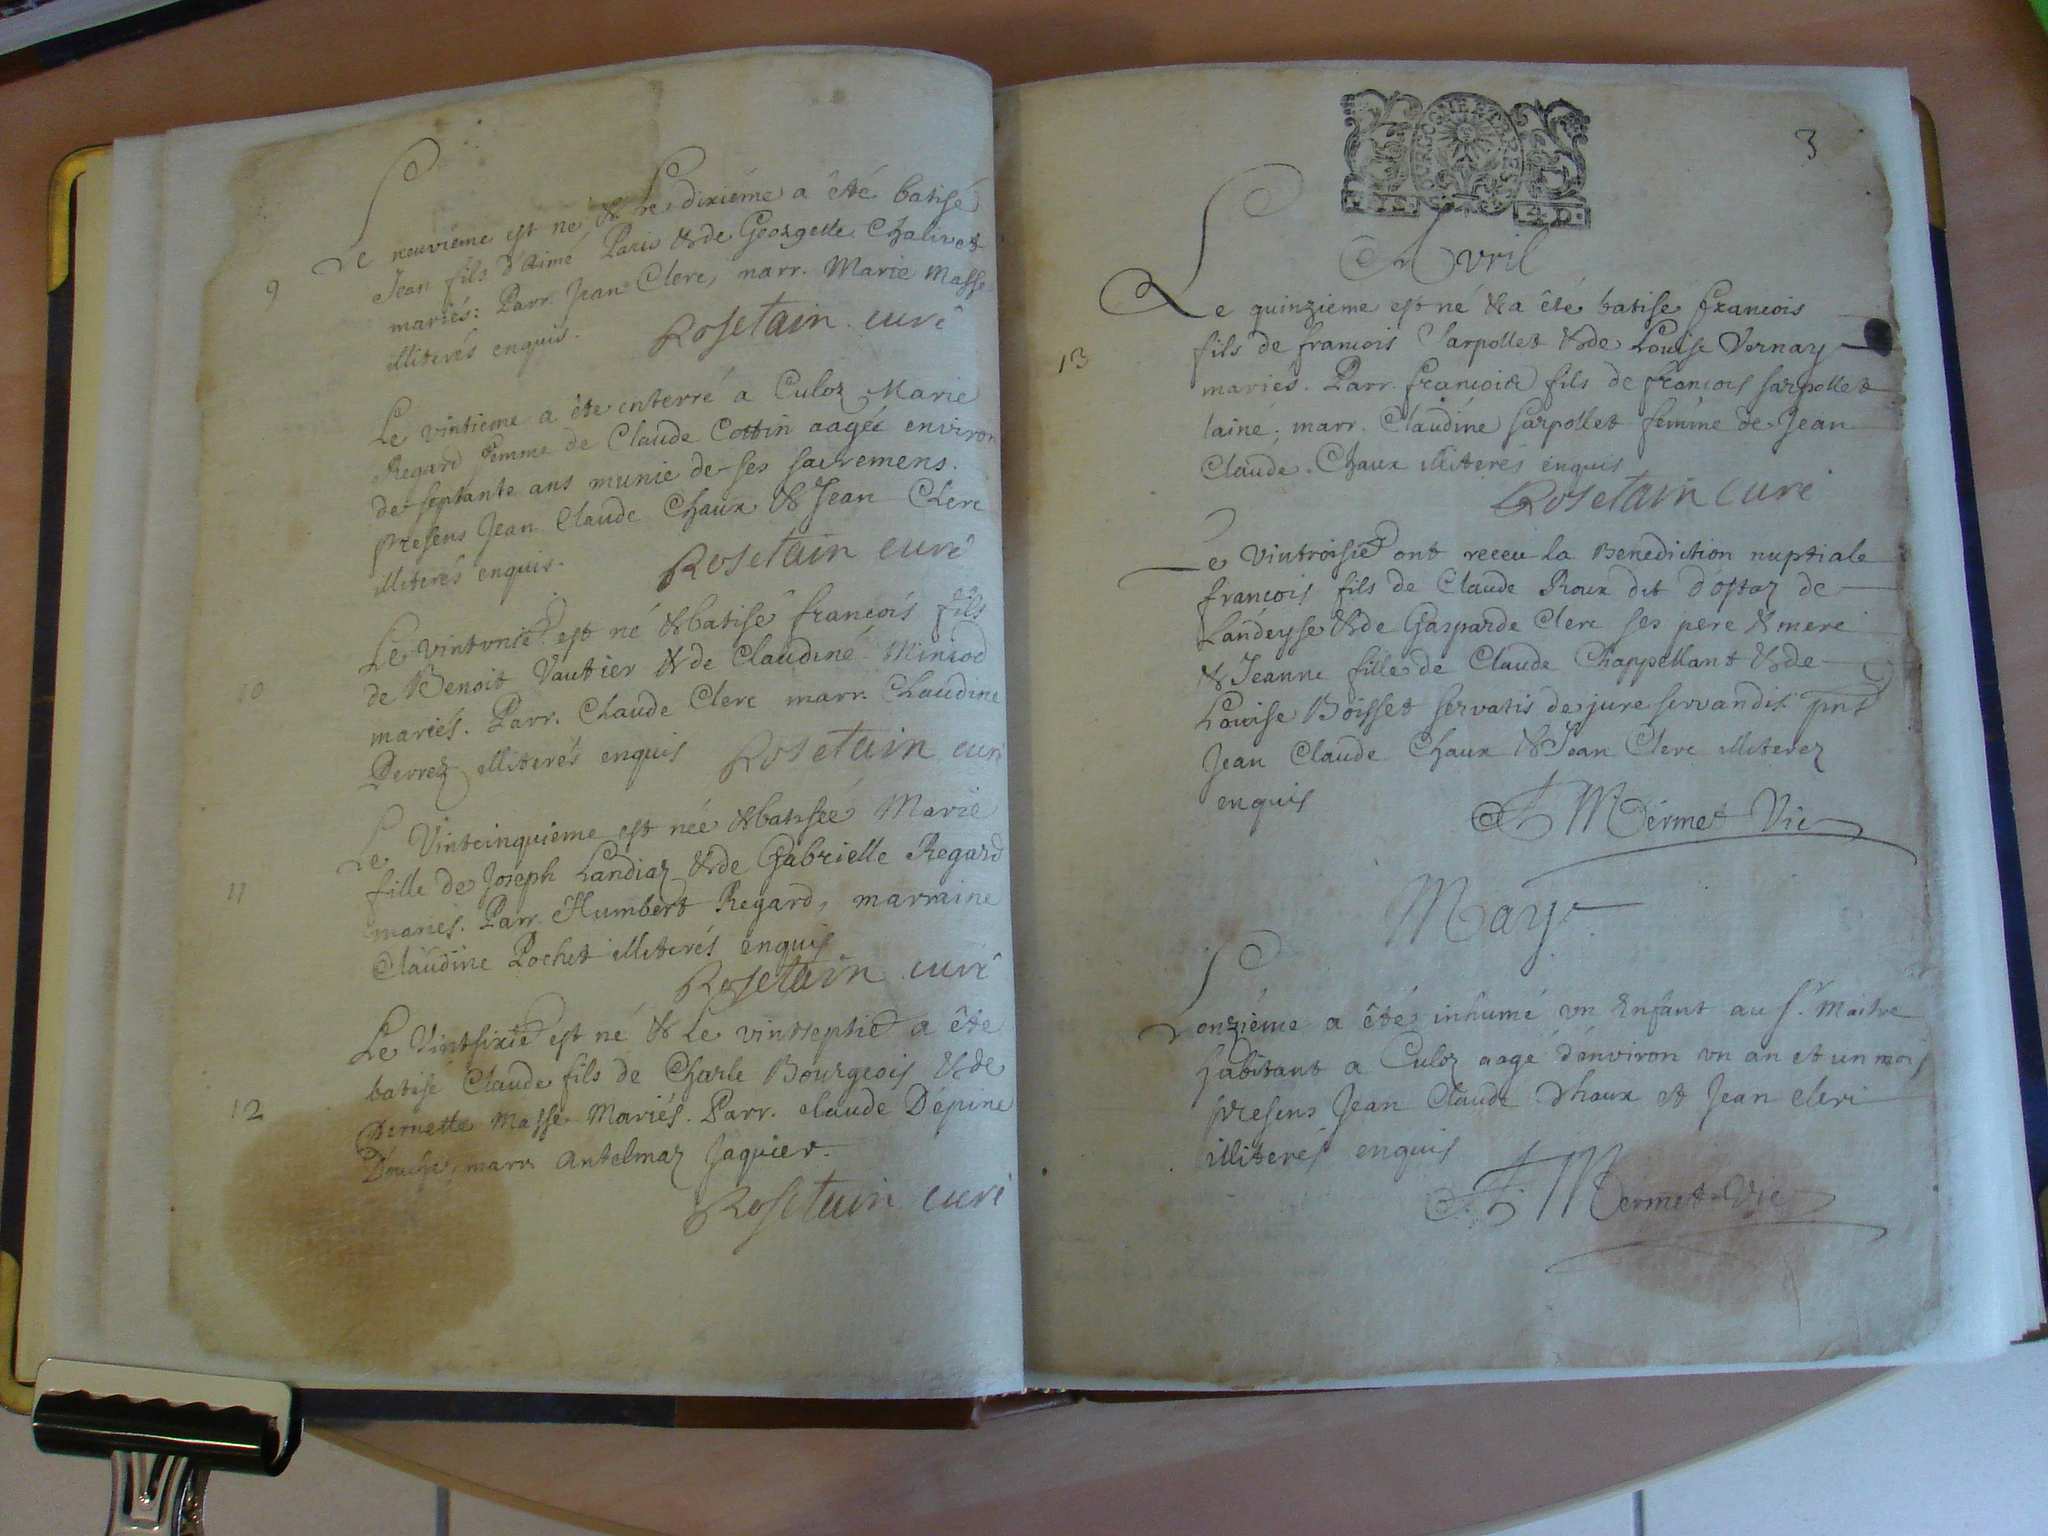 9
Le neuviéme est né & le dixiéme a êté batisé
Jean fils d'Aimé Paris & de Georgette Chalivet
mariés: Parr. Jean Clerc, marr. Marie Masse
illiterés enquis. Rosetain curé
Le vintieme a été enterré a Culoz Marie
Regard femme de Claude Cottin aagée environ
de septante ans munie de ses sacremens.
presens Jean Claude Chaux & Jean Clerc
illiterés enquis. Rosetain curé
10
Le vintunie est né & batisé francois fils
de Benoit Vautier & de Claudine Miniod
mariés. Parr. Claude Clerc marr. Claudine
Perrez illiterés enquis Rosetain curé
11
Le Vintcinquieme est née & batisée Marie
fille de Joseph Landiaz & de Gabrielle Regard
mariés. Parr. Humbert Regard, marraine
Claudine Pochet illiterés enquis
Rosetain curé
12
Le Vintsixie est né & Le vintseptie a êté
batisé Claude fils de Charle Bourgeois & de
Pernette Masse Mariés. Parr. claude Dépine
marr. Antelmaz Jaquier.
Rosetain curé
3
BOURGOGNE ET BRESSE
Avril
13
Le quinzieme est né & a êté batise francois
fils de francois Sarpollet & de Louise Vernay
mariés. Parr. francois fils de francois sarpollet
lainé; marr. Claudine sarpollet femme de Jean
Claude Chaux illiterés enquis
Rosetain curé
Le Vintroisie ont receu la Benediction nuptiale
francois fils de Claude Roux dit dostaz de
Landeyse & de Gasparde Clerc ses pere & mere
& Jeanne fille de Claude Chappellant & de
Louise Boisset servatis de jure servandis. pnt
Jean Claude Chaux & Jean Clerc illiterez
enquis
Mermet Vic
May
Lonziéme a êtés inhumé un Enfant au Sr. Maitre
habitant a Culoz aagé d'environ un an et un mois
presens Jean Claude Chaux et Jean clerc
illiterés enquis
Mermet Vic